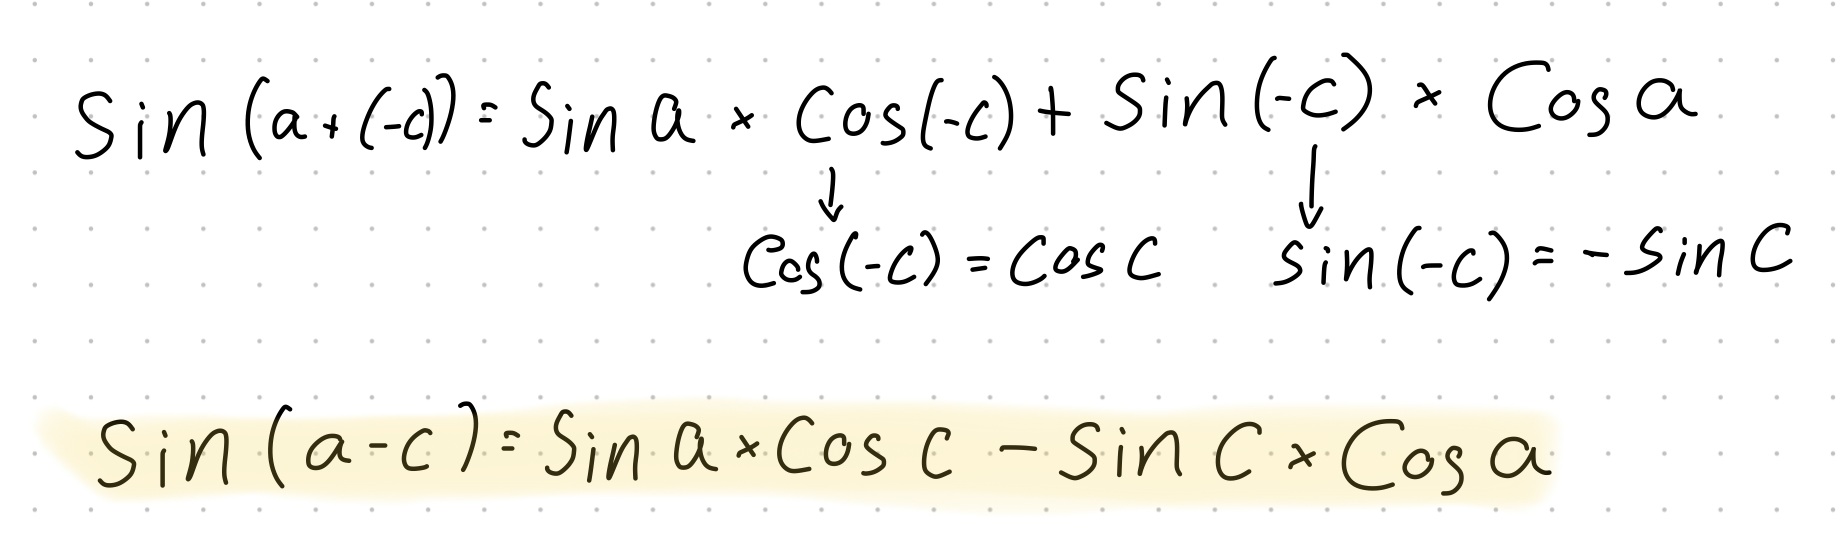 Sin (a+(-c)) = Sin a × Cos(-c) + Sin(-c) × Cos a
↓ ↓
Cos(-c) = Cos C sin(-c) = - Sin C
Sin (a-c) = Sin a × Cos C - Sin C × Cos a